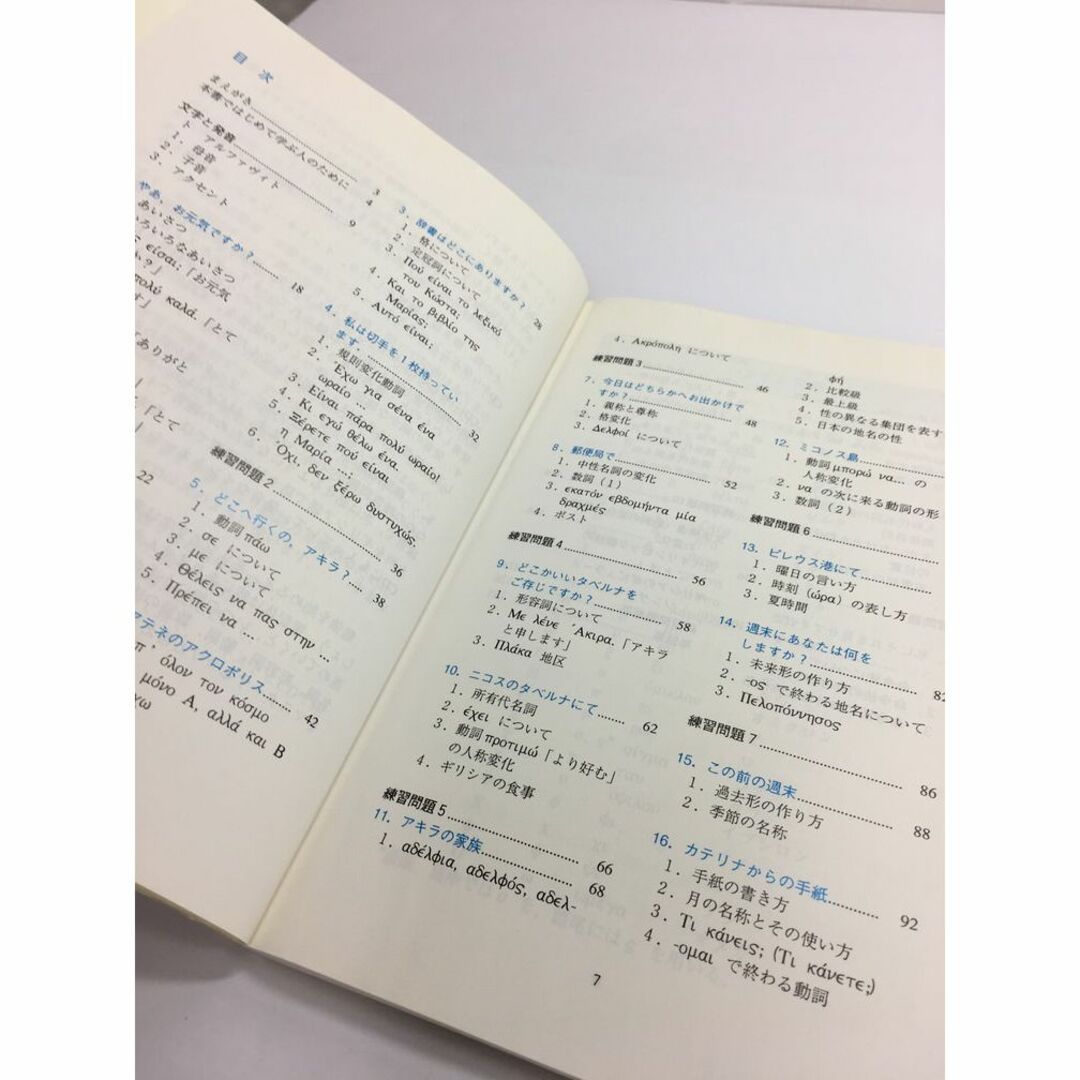 目 次
まえがき 3
本書ではじめて学ぶ人のために 4
文字と発音 9
1. アルファヴィト
2. 母音
3. 子音
アクセント
やあ、お元気ですか? 18
あいさつ
ろいろなあいさつ
ς είσαι;「お元気
?」
πολύ καλά.「とて
す」
ありがと
」
「とて
22
3. 辞書はどこにありますか? 28
1. 格について
2. 定冠詞について
3. Πού είναι το λεξικό
του Κώστα;
4. Και το βιβλίο της
Μαρίας;
5. Αυτό είναι;
4. 私は切手を1枚持ってい
ます. 32
1. 規則変化動詞
2. Έχω για σένα ένα
ωραίο ...
3. Είναι πάρα πολύ ωραίο!
4. Κι εγώ θέλω ένα.
5. Ξέρετε πού είναι
η Μαρία ...;
6. Όχι, δεν ξέρω δυστυχώς.
練習問題2 36
5. どこへ行くの, アキラ? 38
1. 動詞πάω
2. σε について
3. με について
4. Θέλεις να πας στην ...
5. Πρέπει να ...
アテネのアクロポリス 42
π' όλον τον κόσμο
μόνο Α, αλλά και Β
χω
4. Ακρόπολη について
練習問題3 46
7. 今日はどちらかへお出かけで
すか? 48
1. 親称と尊称
2. 格変化
3. Δελφοί について
8. 郵便局で 52
1. 中性名詞の変化
2. 数詞(1)
3. εκατόν εβδομήντα μία
δραχμές
4. ポスト
練習問題4 56
9. どこかいいタベルナを
ご存じですか? 58
1. 形容詞について
2. Με λένε Άκιρα.「アキラ
と申します」
3. Πλάκα 地区
10. ニコスのタベルナにて 62
1. 所有代名詞
2. έχει について
3. 動詞προτιμώ「より好む」
の人称変化
4. ギリシアの食事
練習問題5 66
11. アキラの家族 68
1. αδέλφια, αδελφός, αδελ-
φή
2. 比較級
3. 最上級
4. 性の異なる集団を表す
5. 日本の地名の性
12. ミコノス島
1. 動詞μπορώ να... の
人称変化
2. να の次に来る動詞の形
3. 数詞(2)
練習問題6
13. ピレウス港にて
1. 曜日の言い方
2. 時刻(ώρα)の表し方
3. 夏時間
14. 週末にあなたは何を
しますか? 82
1. 未来形の作り方
2. -ος で終わる地名について
3. Πελοπόννησος
練習問題7 86
15. この前の週末 88
1. 過去形の作り方
2. 季節の名称
16. カテリナからの手紙 92
1. 手紙の書き方
2. 月の名称とその使い方
3. Τι κάνεις; (Τι κάνετε;)
4. -ομαι で終わる動詞
7